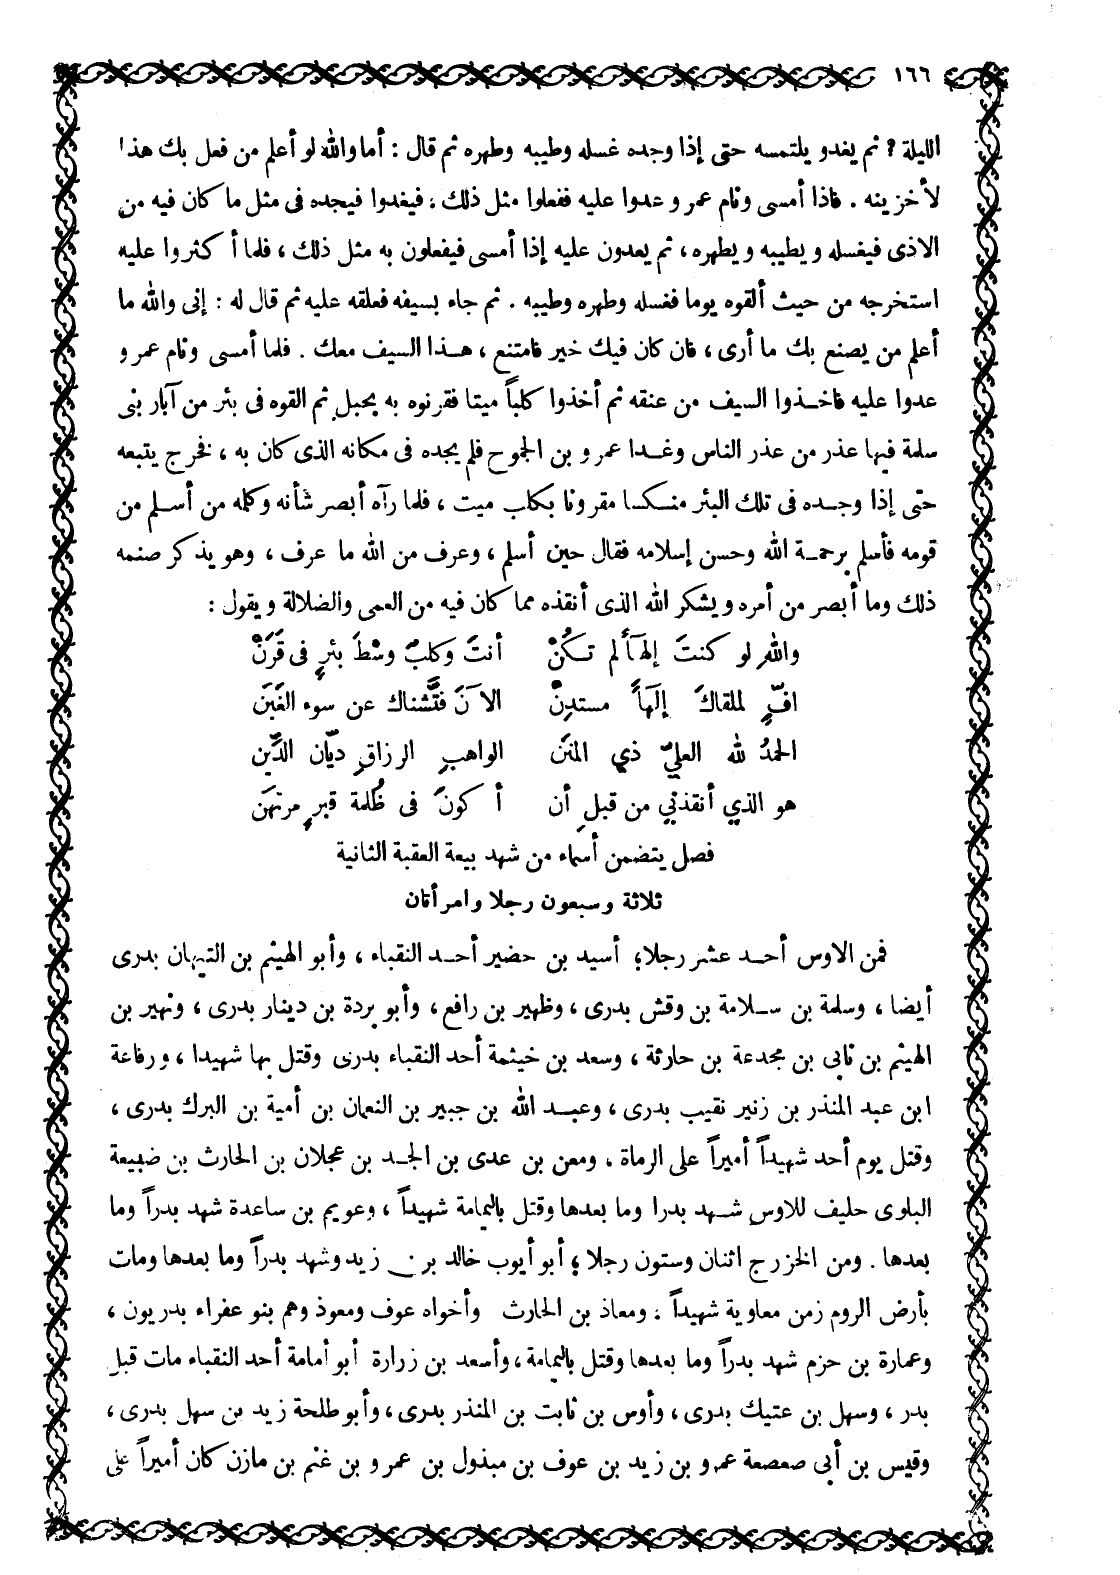 ١٦٦
الليلة ? ثم يغدو يلتمسه حتى إذا وجده غسله وطيبه وطهره ثم قال : أما والله لو أعلم من فعل بك هذا
لأخزينه . فاذا أمسى ونام عمرو عدوا عليه ففعلوا مثل ذلك ، فيغدوا فيجده فى مثل ما كان فيه من
الاذى فيغسله ويطيبه ويطهره ، ثم يعدون عليه إذا أمسى فيفعلون به مثل ذلك ، فلما أكثروا عليه
استخرجه من حيث ألقوه يوما فغسله وطهره وطيبه . ثم جاء بسيفه فعلقه عليه ثم قال له : إنى والله ما
أعلم من يصنع بك ما أرى ، فان كان فيك خير فامتنع ، هذا السيف معك . فلما أمسى ونام عمرو
عدوا عليه فاخذوا السيف من عنقه ثم أخذوا كلباً ميتا فقرنوه به بحبل ثم القوه فى بئر من آبار بنى
سلمة فيها عذر من عذر الناس وغدا عمرو بن الجموح فلم يجده فى مكانه الذى كان به ، فخرج يتبعه
حتى إذا وجده فى تلك البئر منكسا مقرونا بكلب ميت ، فلما رآه أبصر شأنه وكلمه من أسلم من
قومه فأسلم برحمة الله وحسن إسلامه فقال حين أسلم ، وعرف من الله ما عرف ، وهو يذكر صنمه
ذلك وما أبصر من أمره ويشكر الله الذى أنقذه مما كان فيه من العمى والضلالة ويقول :
والله لو كنتَ إلهاً لم تكُنْ أنتَ وكلبٌ وسْطَ بئرٍ فى قَرَنْ
افٍّ لملقاكَ إلَهاً مستدِنْ الآنَ فتَّشناك عن سوء الغَبَن
الحمدُ لله العليّ ذي المنَن الواهبِ الرزاقِ ديّان الدِّين
هو الذي أنقذني من قبل أن أكونَ فى ظُلمة قبرٍ مرتهَن
فصل يتضمن أسماء من شهد بيعة العقبة الثانية
ثلاثة وسبعون رجلا وامرأتان
فمن الاوس أحد عشر رجلا ؛ أسيد بن حضير أحد النقباء ، وأبو الهيثم بن التيهان بدرى
أيضا ، وسلمة بن سلامة بن وقش بدرى ، وظهير بن رافع ، وأبو بردة بن دينار بدرى ، ونهير بن
الهيثم بن نابى بن مجدعة بن حارثة ، وسعد بن خيثمة أحد النقباء بدرى وقتل بها شهيدا ، ورفاعة
ابن عبد المنذر بن زنير نقيب بدرى ، وعبد الله بن جبير بن النعمان بن أمية بن البرك بدرى ،
وقتل يوم أحد شهيداً أميراً على الرماة ، ومعن بن عدى بن الجد بن عجلان بن الحارث بن ضبيعة
البلوى حليف للاوس شهد بدرا وما بعدها وقتل باليمامة شهيداً ، وعويم بن ساعدة شهد بدراً وما
بعدها . ومن الخزرج اثنان وستون رجلا ؛ أبو أيوب خالد بن زيد وشهد بدراً وما بعدها ومات
بأرض الروم زمن معاوية شهيداً . ومعاذ بن الحارث وأخواه عوف ومعوذ وهم بنو عفراء بدريون ،
وعمارة بن حزم شهد بدراً وما بعدها وقتل باليمامة ، وأسعد بن زرارة أبو أمامة أحد النقباء مات قبل
بدر ، وسهل بن عتيك بدرى ، وأوس بن ثابت بن المنذر بدرى ، وأبو طلحة زيد بن سهل بدرى ،
وقيس بن أبى صعصعة عمرو بن زيد بن عوف بن مبذول بن عمرو بن غنم بن مازن كان أميراً على